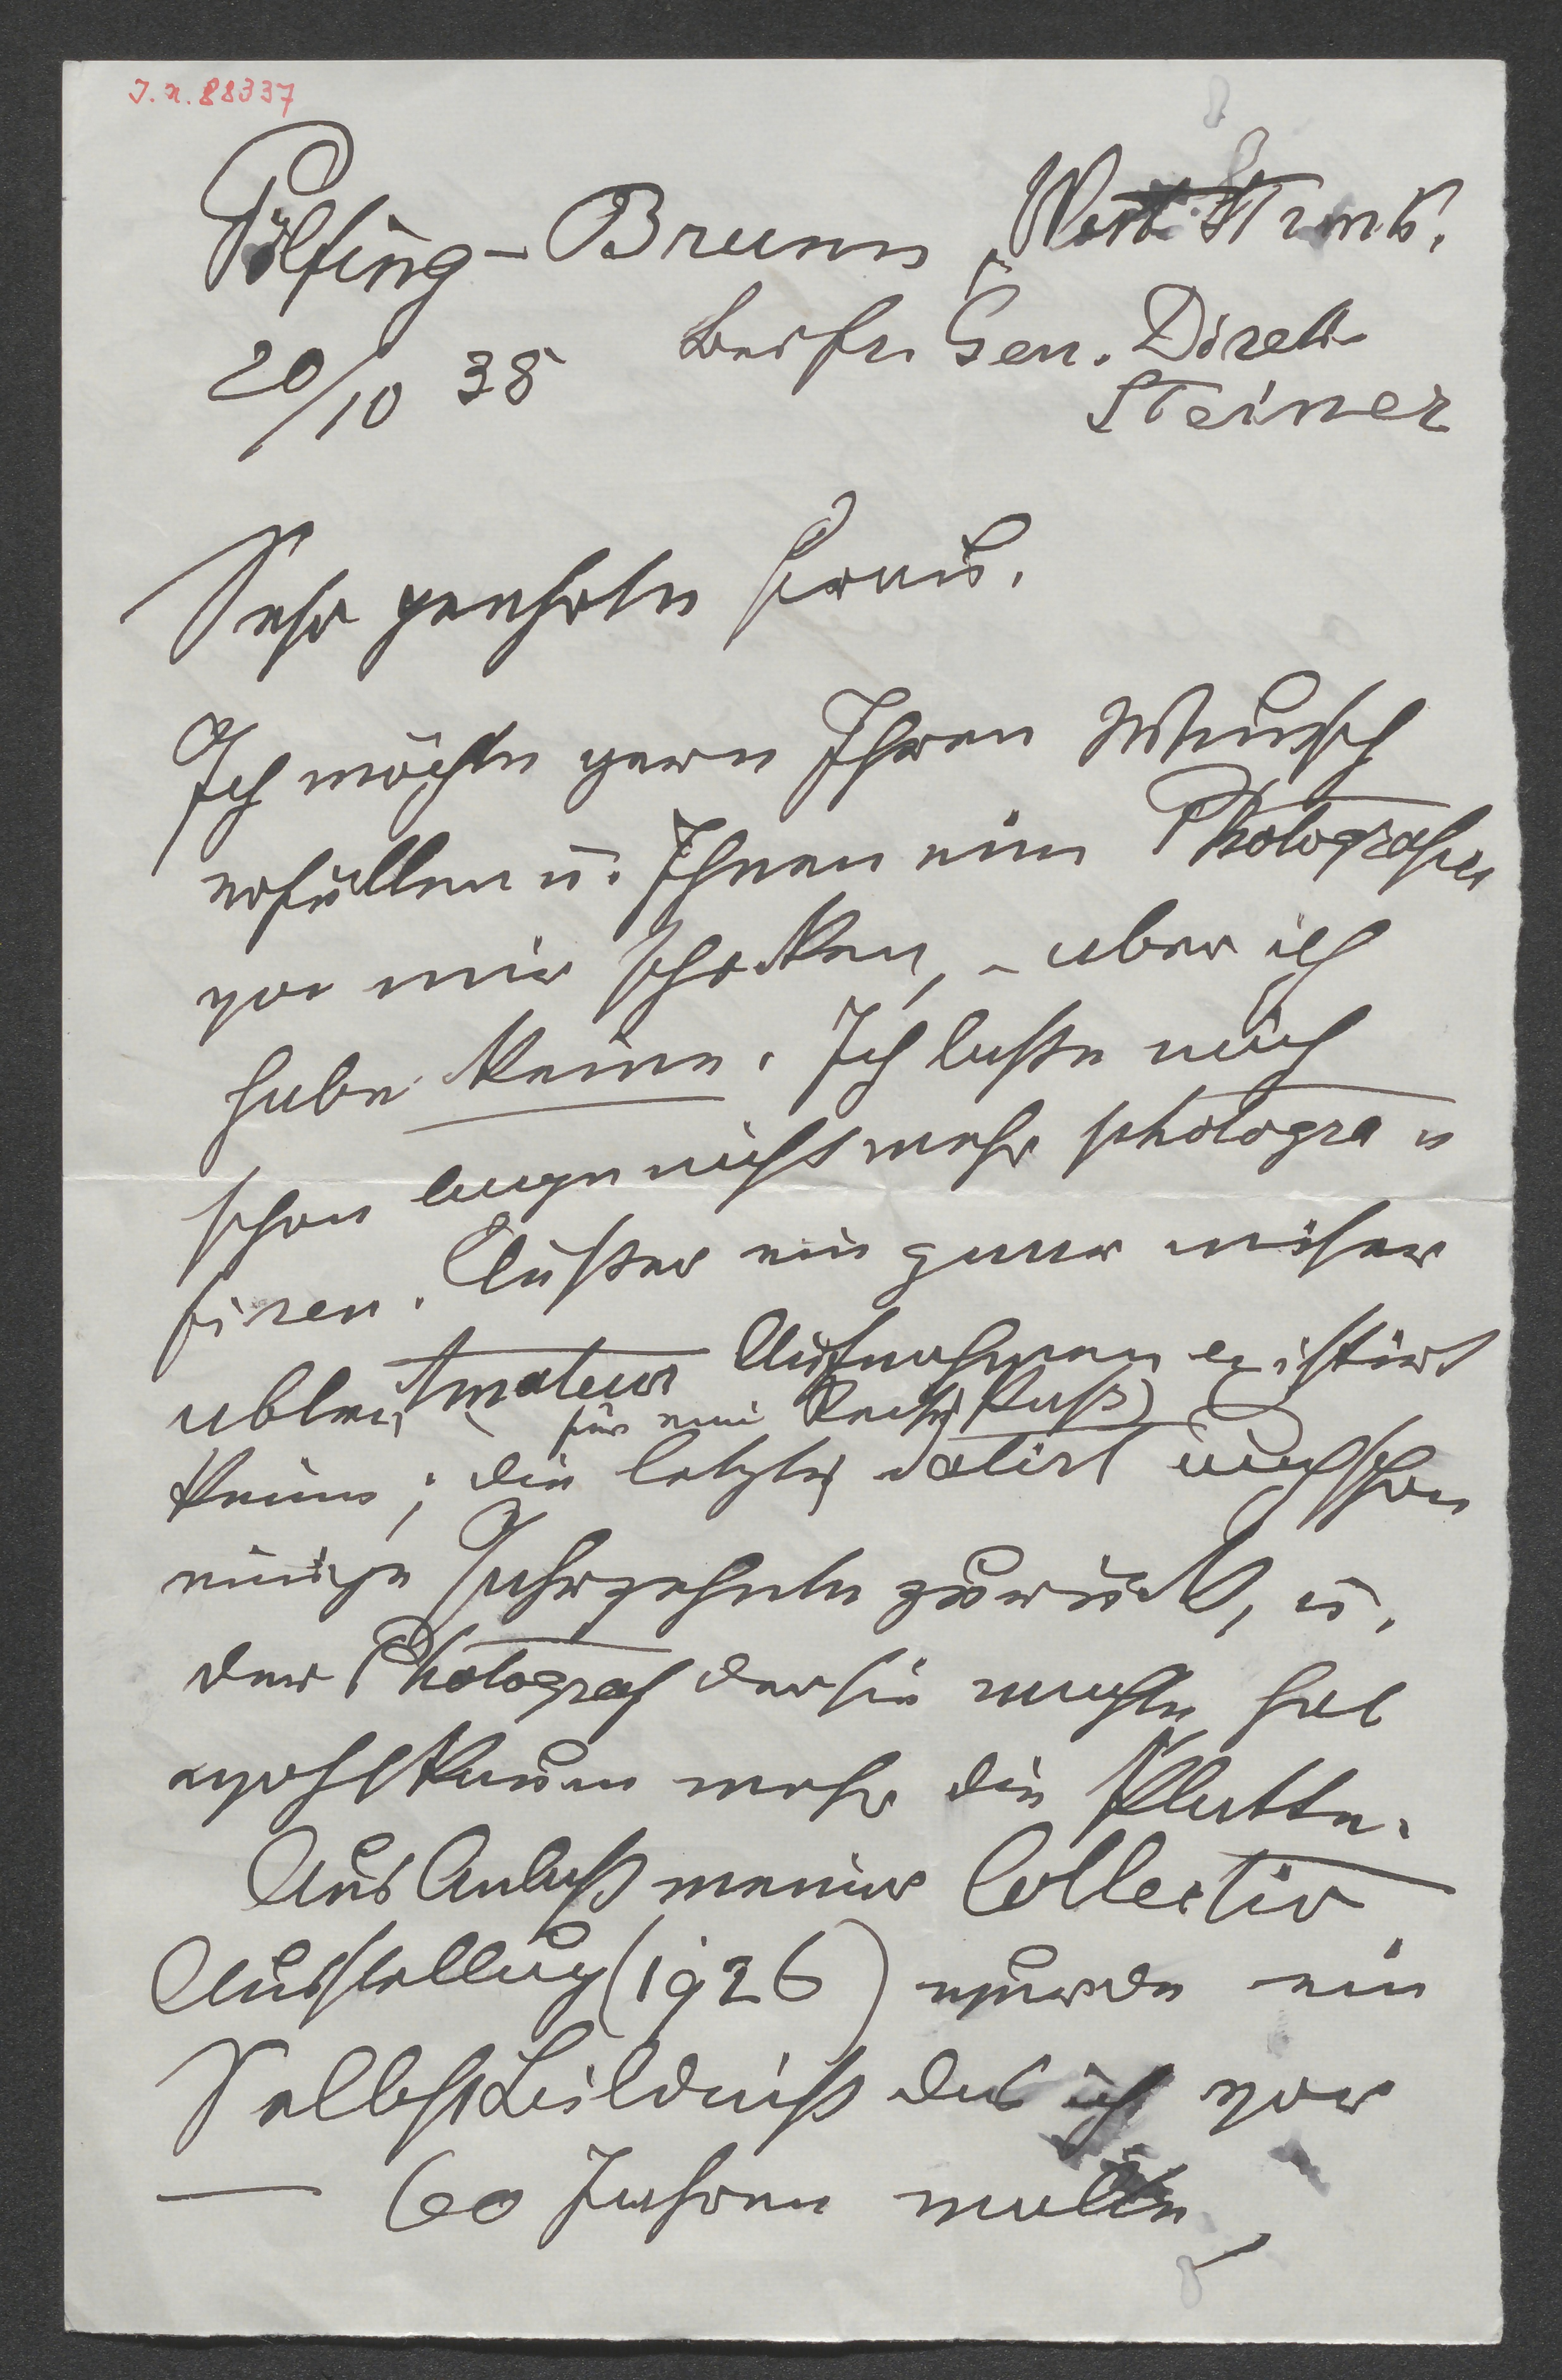 I.N. 88337
Pölfing-Brunn, West Strmk.
bei Fr. Gen. Direkt.
20/10 38
Steiner
Sehr geehrte Frau.
Ich möchte gern Ihren Wunsch
erfüllen u. Ihnen eine Photografie
von mir schicken, - aber ich
habe keine. Ich laße mich
schon lange nicht mehr photogra=
firen. Außer ein paar miser
ablen Amateur Aufnahmen existirt
(für eine Reise Paß)
keine; die letzte datirt auch schon
einige Jahrzehnte zurück, u.
der Photograf der sie machte hat
wohl kaum mehr die Platte.
Aus Anlaß meiner Collectiv
Ausstellung (1926) wurde ein
Selbstbildniß das ich vor
— 60 Jahren malte,